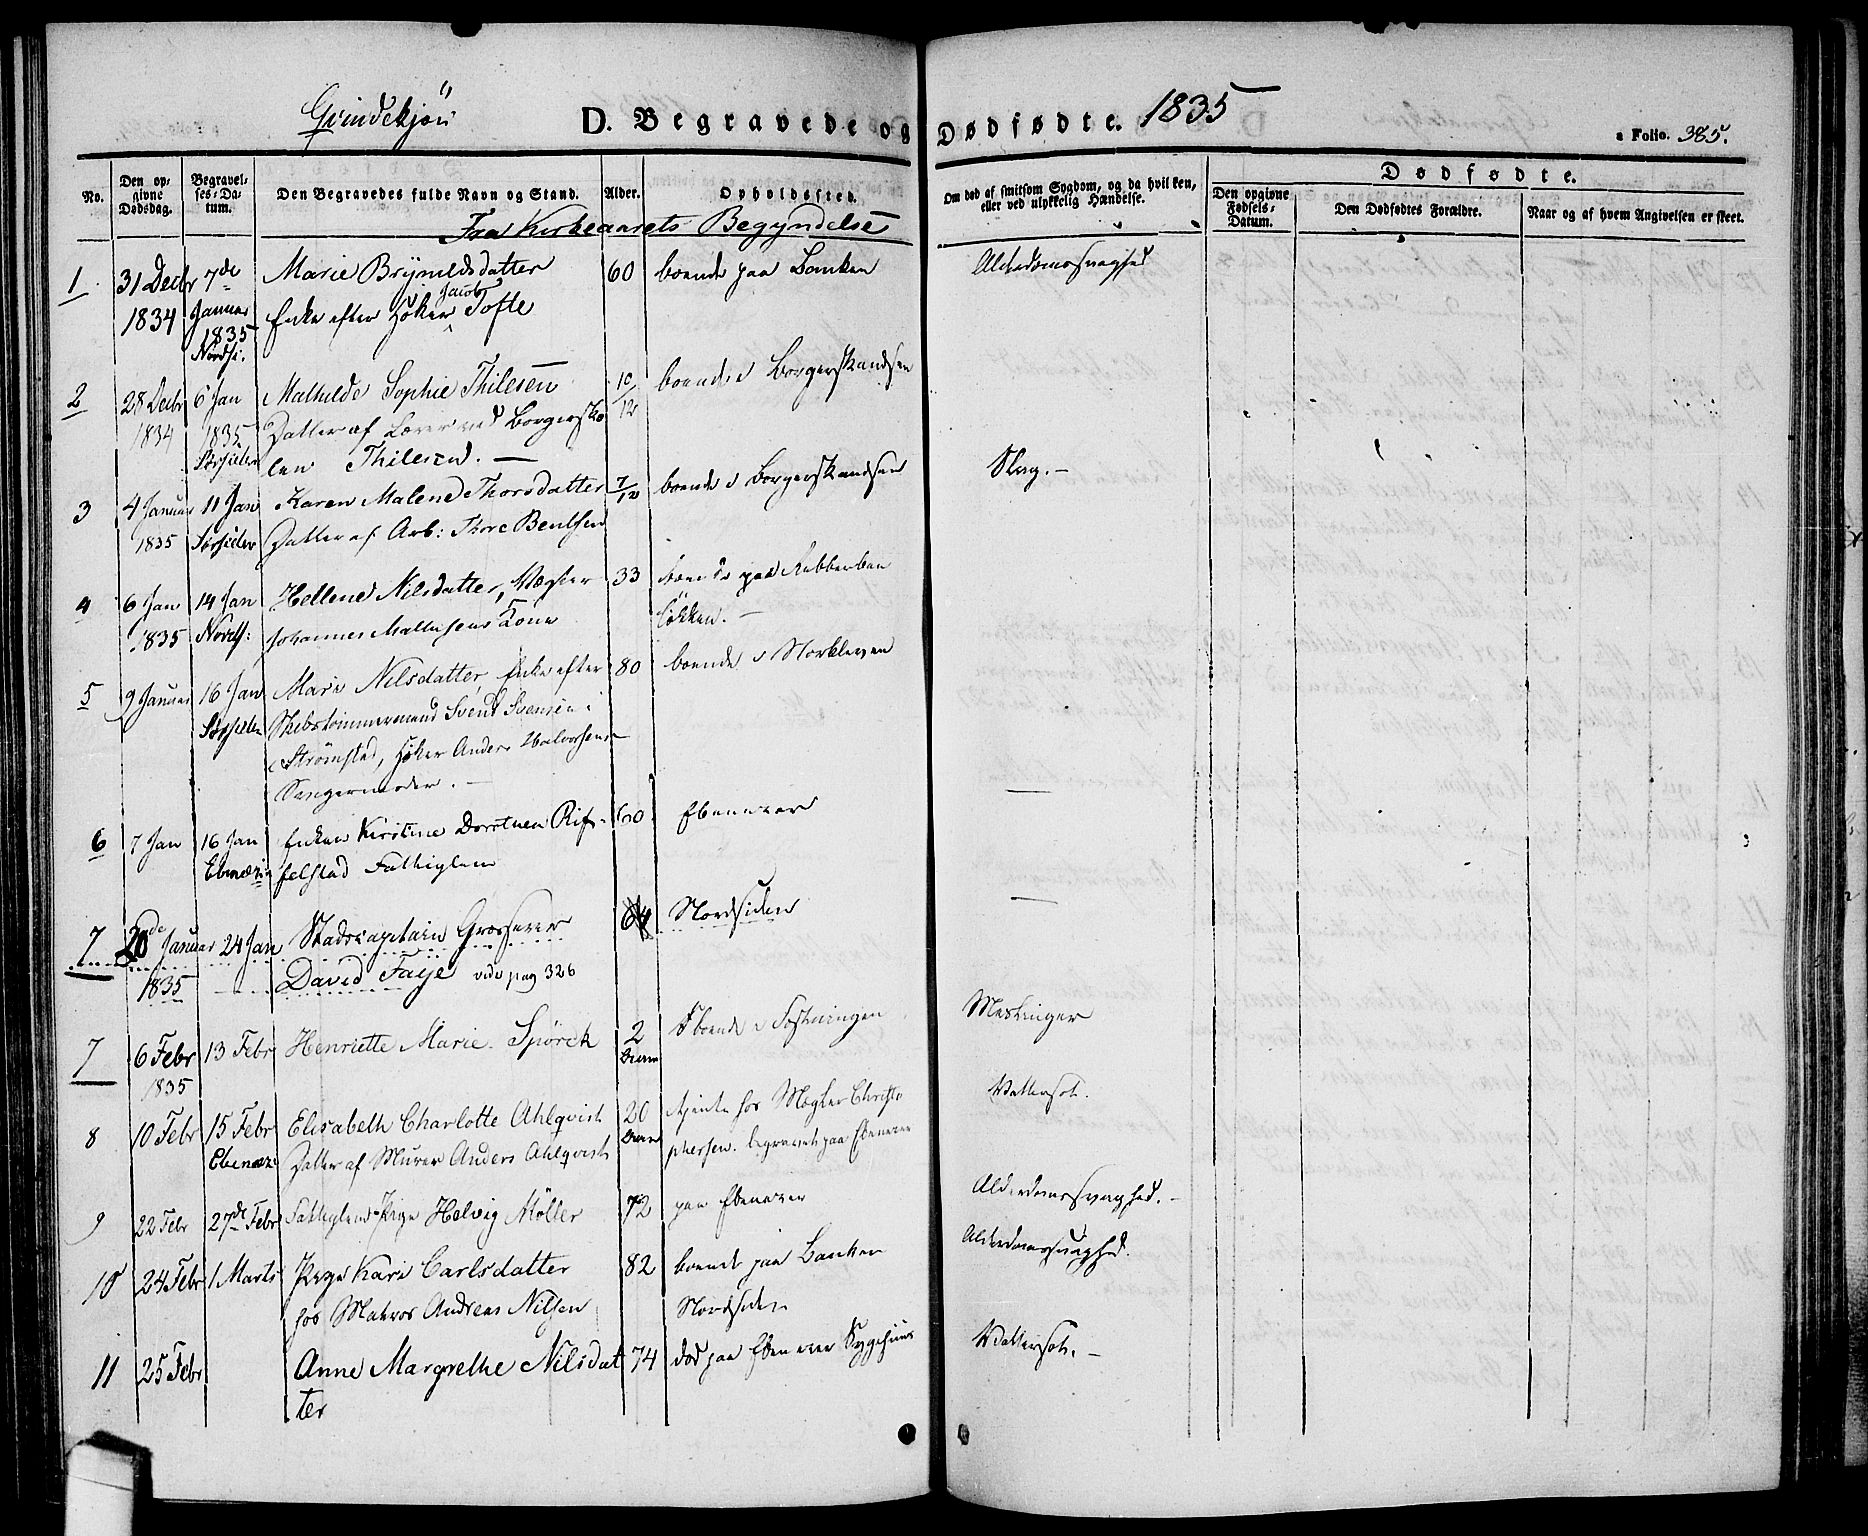 Qvindekjön
D. Begravede og Dødfødte. 1835
a Folio. 385.
No.
Den opgivne Dødsdag.
Begravelses-Datum.
Den Begravedes fulde Navn og Stand.
Alder.
Opholdssted.
Om død af smitsom Sygdom, og da hvilken, eller ved ulykkelig Hændelse.
Dødfødte.
Den opgivne Fødsels-Datum.
Den Dødfødtes Forældre.
Naar og af hvem Angivelsen er skeet.
Fra Kirkeaarets Begyndelse
1 31 Decbr 7de Marie Brynildsdatter 60 boende paa Banken Alderdomssvaghed
1834 Januar Enke efter Höker Jacob Tofte
1835
Nordsi.
2 28 Decbr 6 Jan Mathilde Sophie Thilesen 10/12 boende i Borgerskandsen
1834 1835 Datter af Lærer ved Borgersko
Sörsiden len Thilesen. —
3 4 Januar 11 Jan Karen Malene Thorsdatter 7/12 boende i Borgerskandsen Slag. —
1835 Sörsiden Datter af Arb: Thore Bentsen
4 6 Jan 14 Jan Hellene Nilsdatter, Vægter 33 boende paa
1835 Nords: Johannes Mathisens Kone lökken. —
5 9 Januar 16 Jan Mari Nilsdatter Enke efter 80 boende i Storkleven
Sörsiden Skibstømmermand Svend Svensen i
Strömstad, Höker Anders Halvorsens
Svigermoder. —
6 7 Jan 16 Jan Enken Kirstine Dorothea Rif- 60 Ebenezer —
Ebenezer felstad Fattiglem
7 20de Januar 24 Jan Stadscapitain Grosserer 64 Nordsiden —
1835 David Faye vide pag 326
7 6 Febr 13 Febr Henriette Marie Spörck 2 boende i Mæslinger
1835
8 10 Febr 15 Febr Elisabeth Charlotte Ahlqvist 20 tjente hos Mægler Christo Vattersot.
Ebenezer Datter af Murer Anders Ahlqvist phersen. begravet paa Ebenezer
9 22 Febr 27de Febr Fattiglem Pige Helvig Möller 72 paa Ebenezer Alderdomssvaghed. —
10 24 Febr 1 Marts Pige Kari Carlsdatter 82 boende paa Banken Alderdomssvaghed.
hos Matros Andreas Nilsen Nordsiden
11 25 Febr Anne Margrethe Nilsdat 74 död paa Ebenezer Sygehuus Vattersot. —
ter